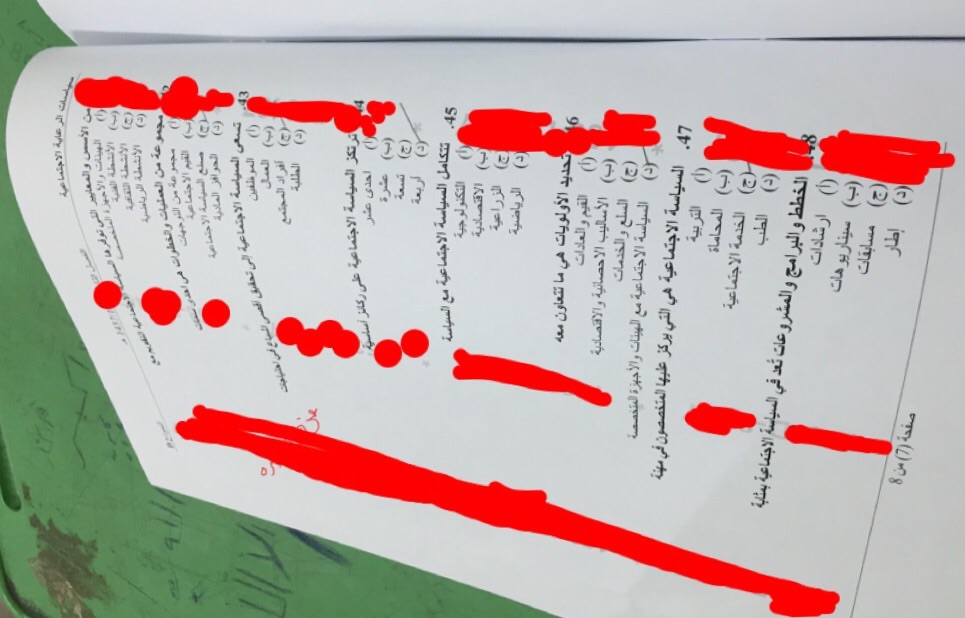 سياسات الرعاية الاجتماعية
من الأسس والمعايير التي توفرها
(أ) الهيئات والأجهزة المتخصصة
(ب) الأنشطة الفنية
(ج) الأنشطة الثقافية
(د) الأنشطة الرياضية
مجموعة من العمليات والخطوات هي
(أ) مجموعة من التوجيهات
(ب) القيم الاجتماعية
(ج) صنع السياسة الاجتماعية
(د) الحوافز المادية
43. تسعى السياسة الاجتماعية إلى تحقيق أقصى إشباع في احتياجات
(أ) الموظفين
(ب) العمال
(ج) أفراد المجتمع
(د) الطلبة
ترتكز السياسة الاجتماعية على ركائز أساسية
(أ) احدى عشر
(ب) عشرة
(ج) تسعة
(د) أربعة
45. تتكامل السياسة الاجتماعية مع السياسة
(أ) التكنولوجية
(ب) الاقتصادية
(ج) الزراعية
(د) الرياضية
46 تحديد الأولويات هي ما تتعاون معه
(أ) القيم والعادات
(ب) الأساليب الاحصائية والاقتصادية
(ج) السلع والخدمات
(د) السياسة الاجتماعية مع الهيئات والأجهزة المتخصصة
47. السياسة الاجتماعية هي التي يركز عليها المتخصصون في مهنة
(أ) التربية
(ب) المحاماة
(ج) الخدمة الاجتماعية
(د) الطب
48 الخطط والبرامج والمشروعات تُعد في السياسة الاجتماعية بمثابة
(أ) ارشادات
(ب) سيناريوهات
(ج) مسابقات
(د) إطار
صفحة (7) من 8